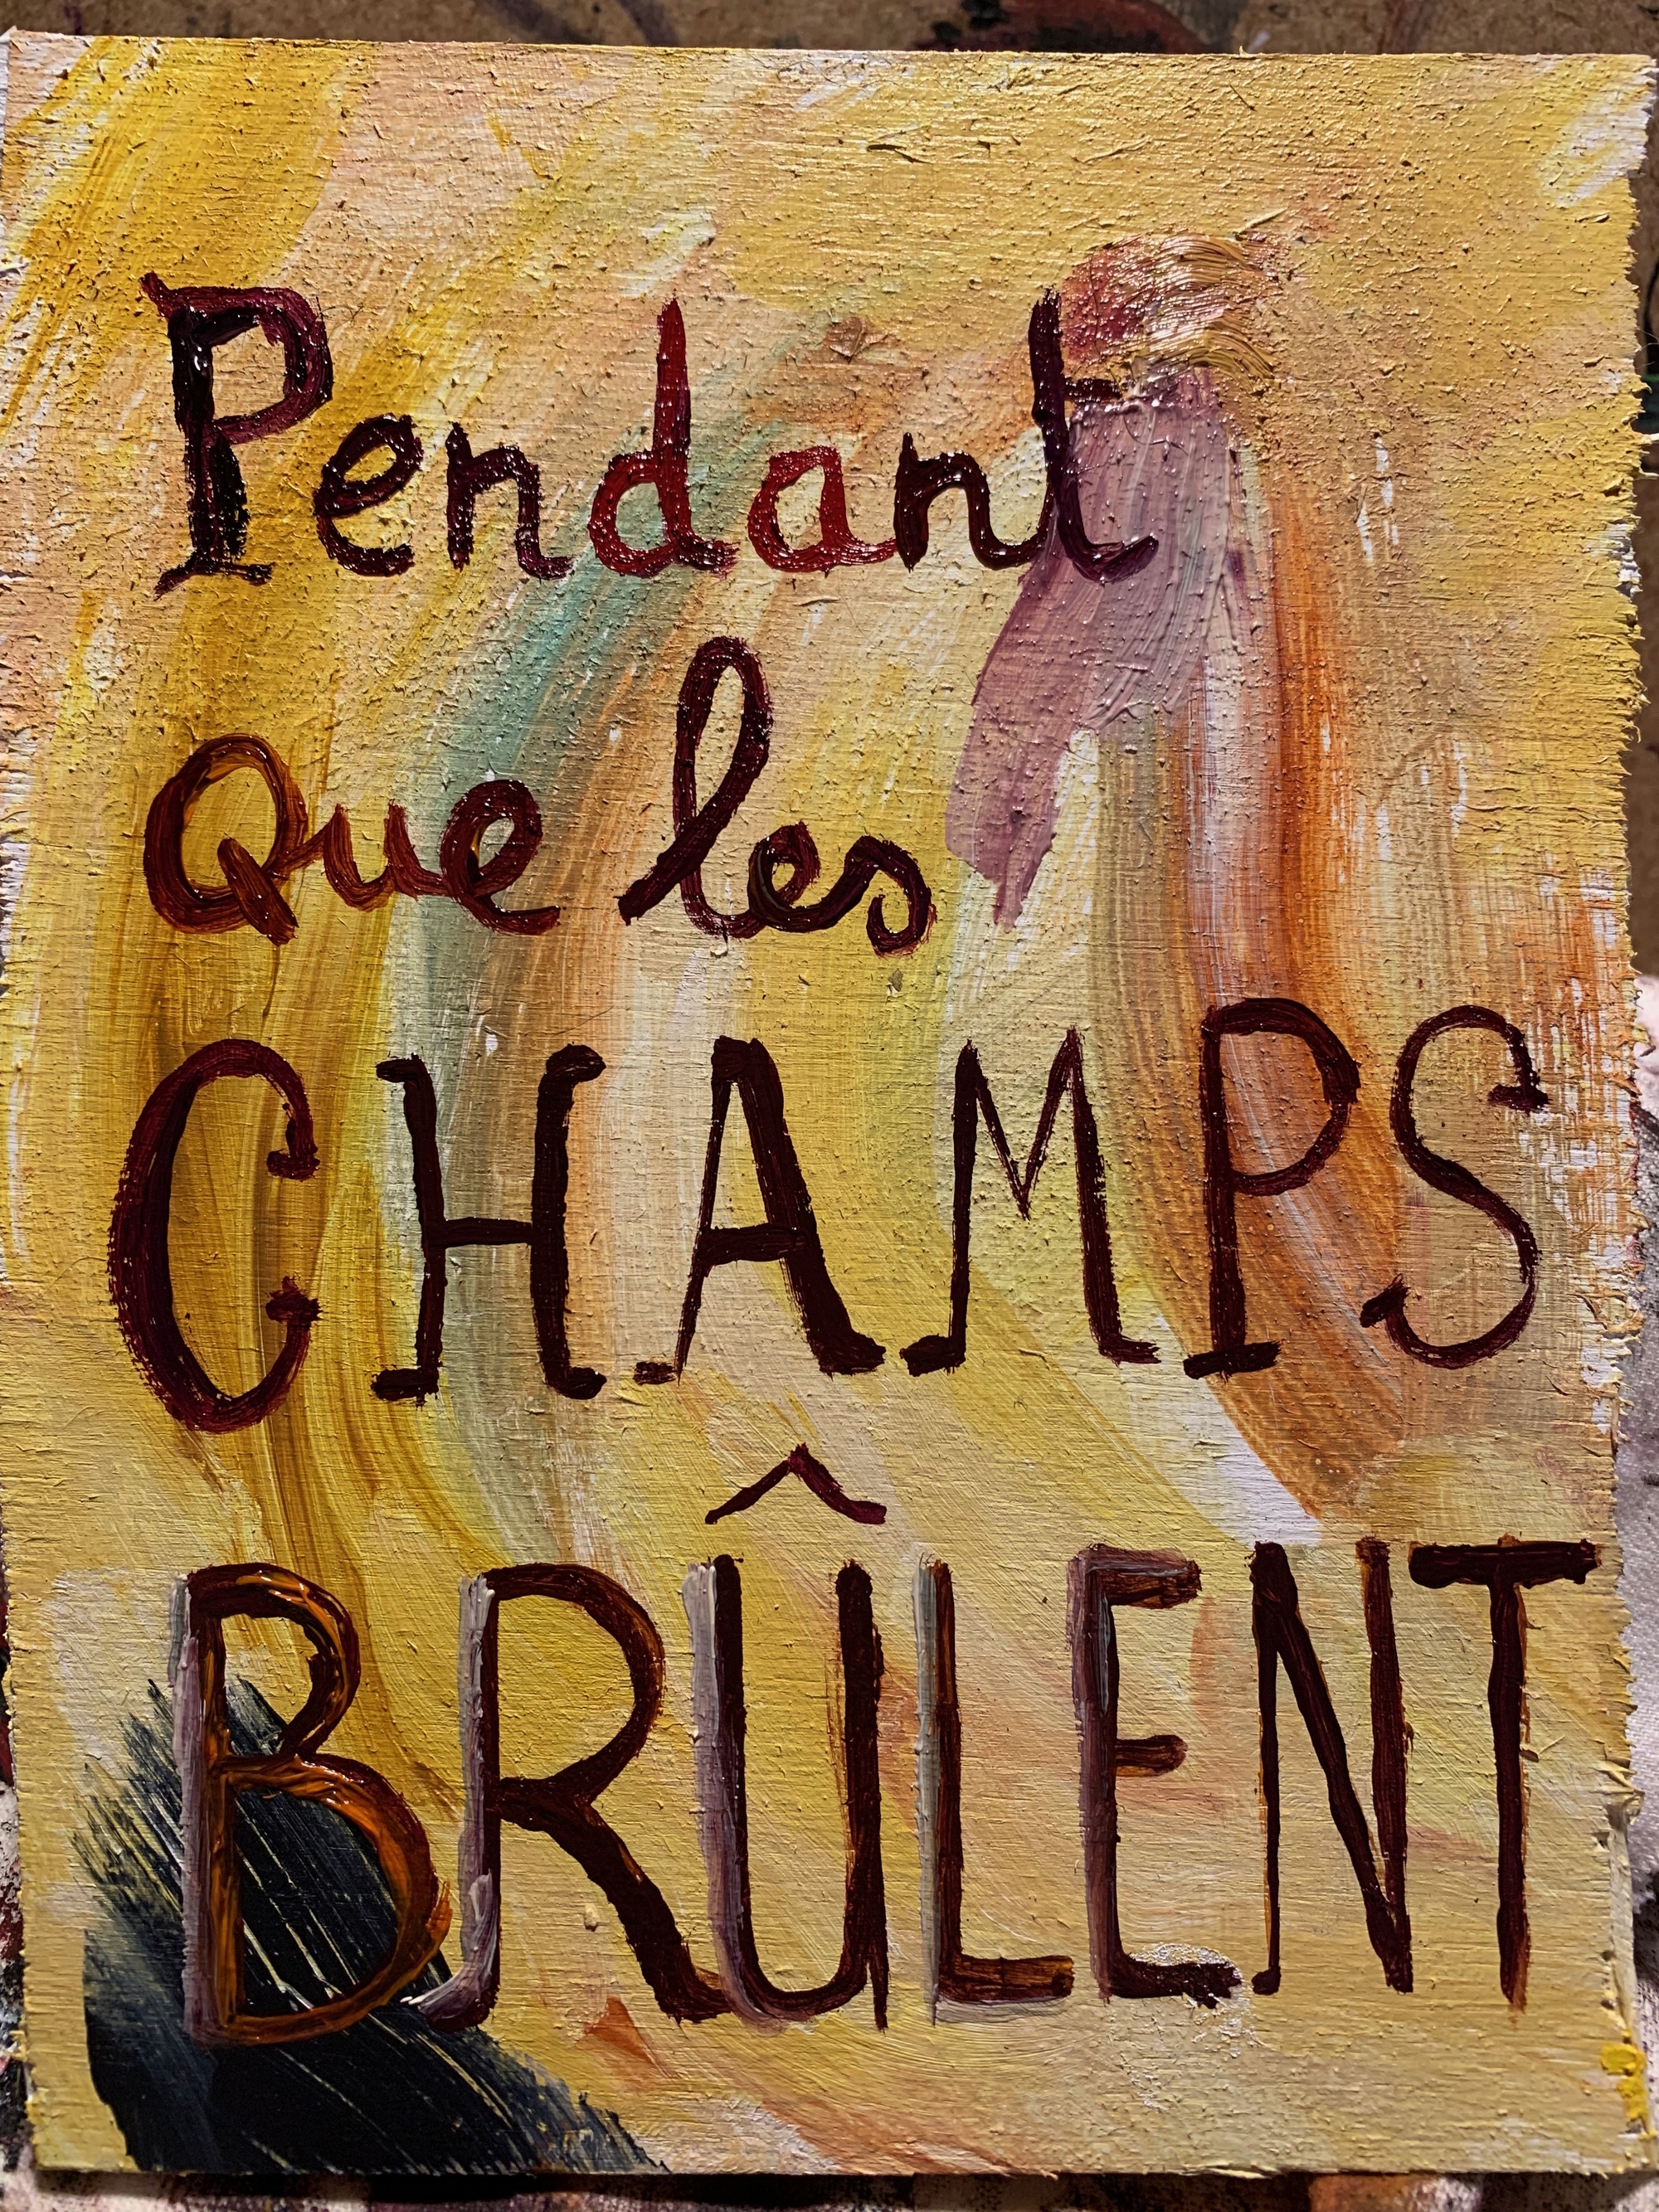 Pendant
Que les
CHAMPS
BRÛLENT